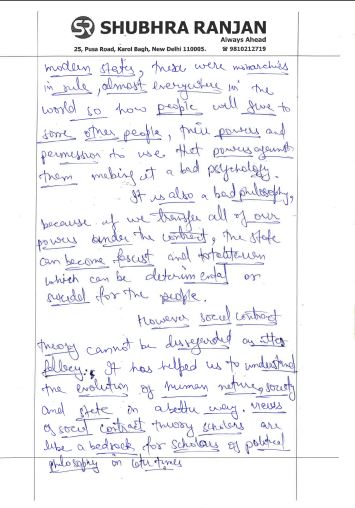 SHUBHRA RANJAN
Always Ahead
25, Pusa Road, Karol Bagh, New Delhi 110005. ☎ 9810212719
modern states, these were monarchies
in rule almost everywhere in the
world so how people will give to
some other people, their powers and
permission to use that powers against
them making it a bad psychology.
It is also a bad philosophy,
because if we transfer all of our
powers under the contract, the state
can become fascist and totalitarian
which can be determental or
suicidal for the people.
However social contract
theory cannot be disregarded as
fallacy. It has helped us to understand
the evolution of human nature, society
and state in a better way. views
of social contract theory scholars are
like a bedrock for scholars of political
philosophy in times